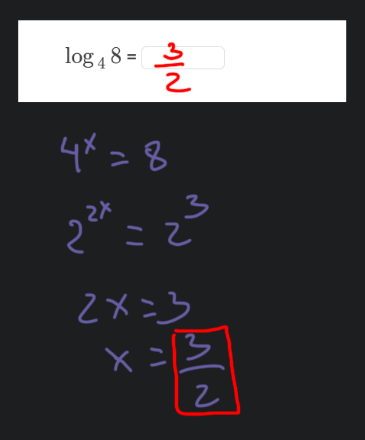 log₄ 8 = 3/2
4ˣ = 8
2²ˣ = 2³
2x = 3
x = 3/2